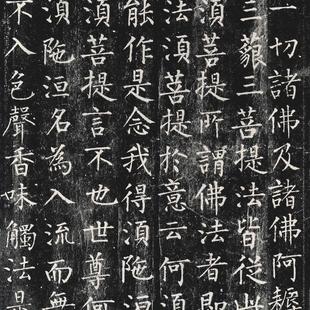 一切諸佛及諸佛阿耨
三藐三菩提法皆從此
湏菩提所謂佛法者即
法湏菩提於意云何湏
能作是念我得湏陁洹
湏菩提言不也世尊何
湏陁洹名為入流而無
不入色聲香味觸法是